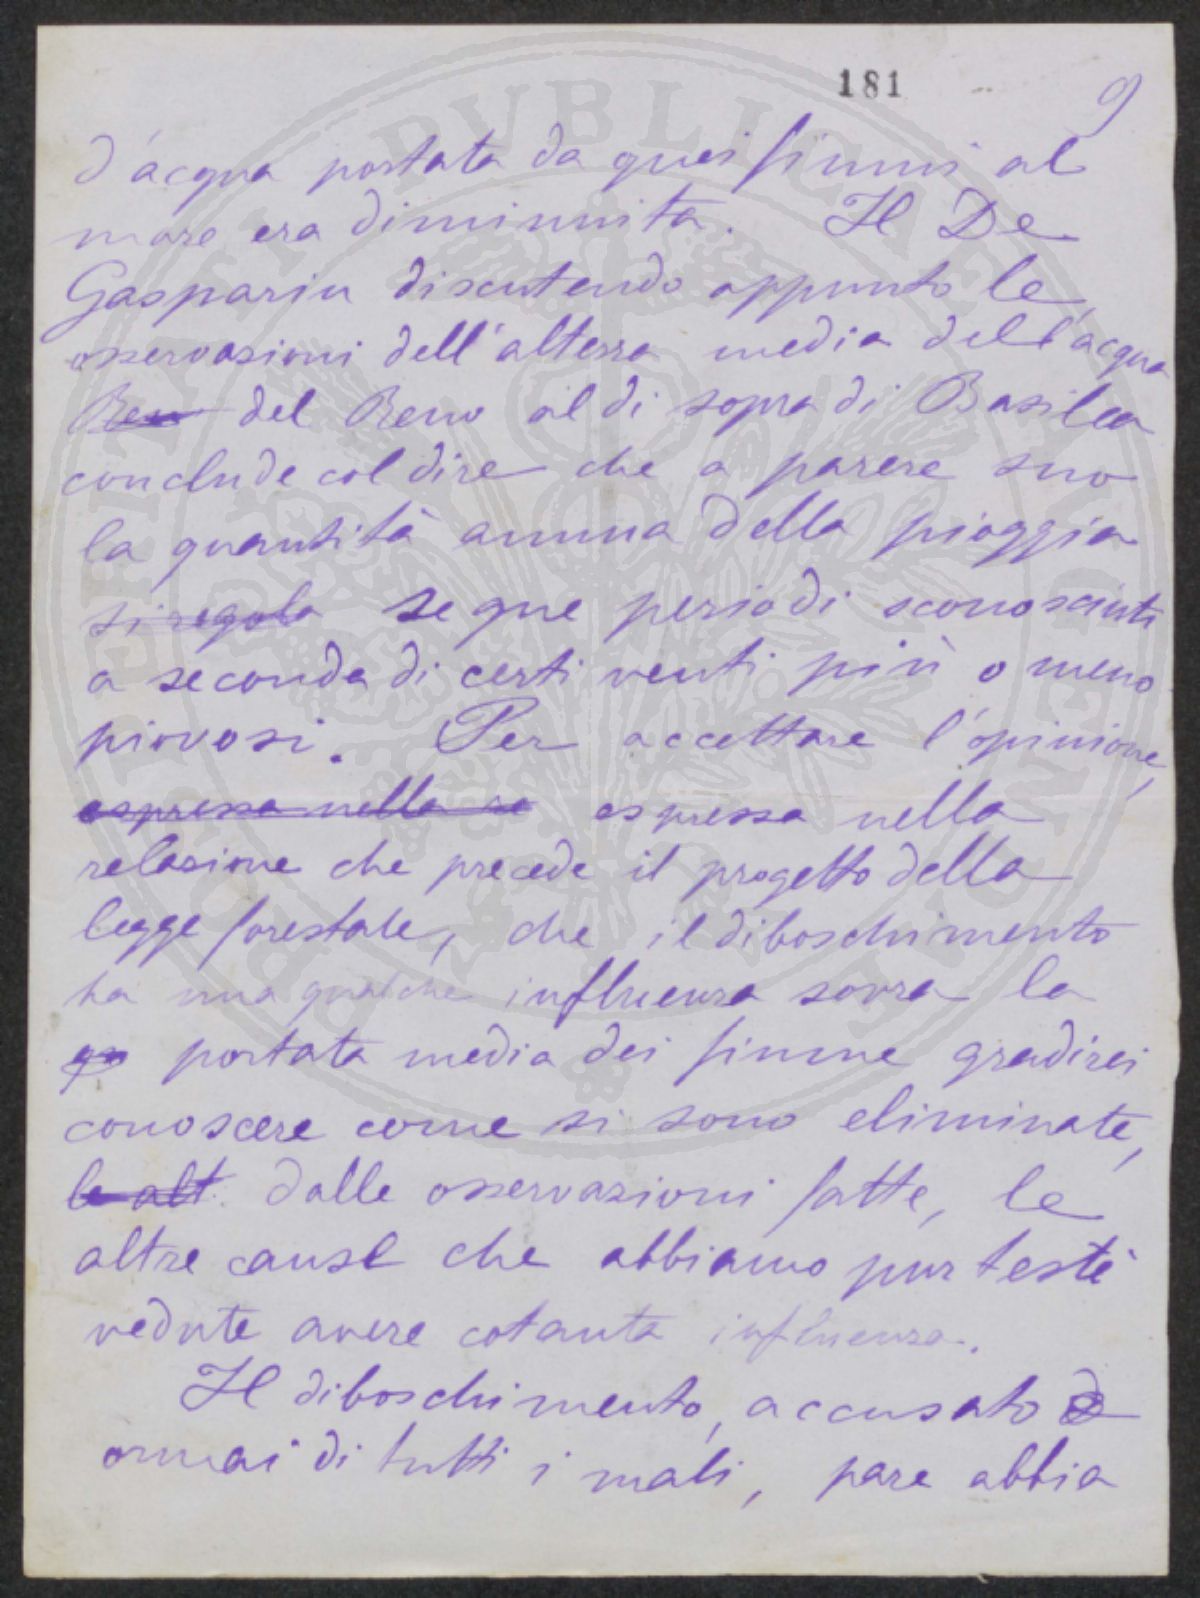 181 9
d'acqua portata da quei fiumi al
mare era diminuita. Il De
Gasparin discutendo appunto le
osservazioni dell'altezza media dell'acqua
Ren del Reno al di sopra di Basilea
conclude col dire che a parere suo
la quantità annua della pioggia
si regola segue periodi sconosciuti
a seconda di certi venti più o meno
piovosi. Per accettare l'opinione,
espressa nella re espressa nella
relazione che precede il progetto della
legge forestale, che il diboschimento
ha una qualche influenza sovra la
qu portata media dei fiume gradirei
conoscere come si sono eliminate,
le alt. dalle osservazioni fatte, le
altre cause che abbiamo pur testè
vedute avere cotanta influenza.
Il diboschimento, accusato d
ormai di tutti i mali, pare abbia